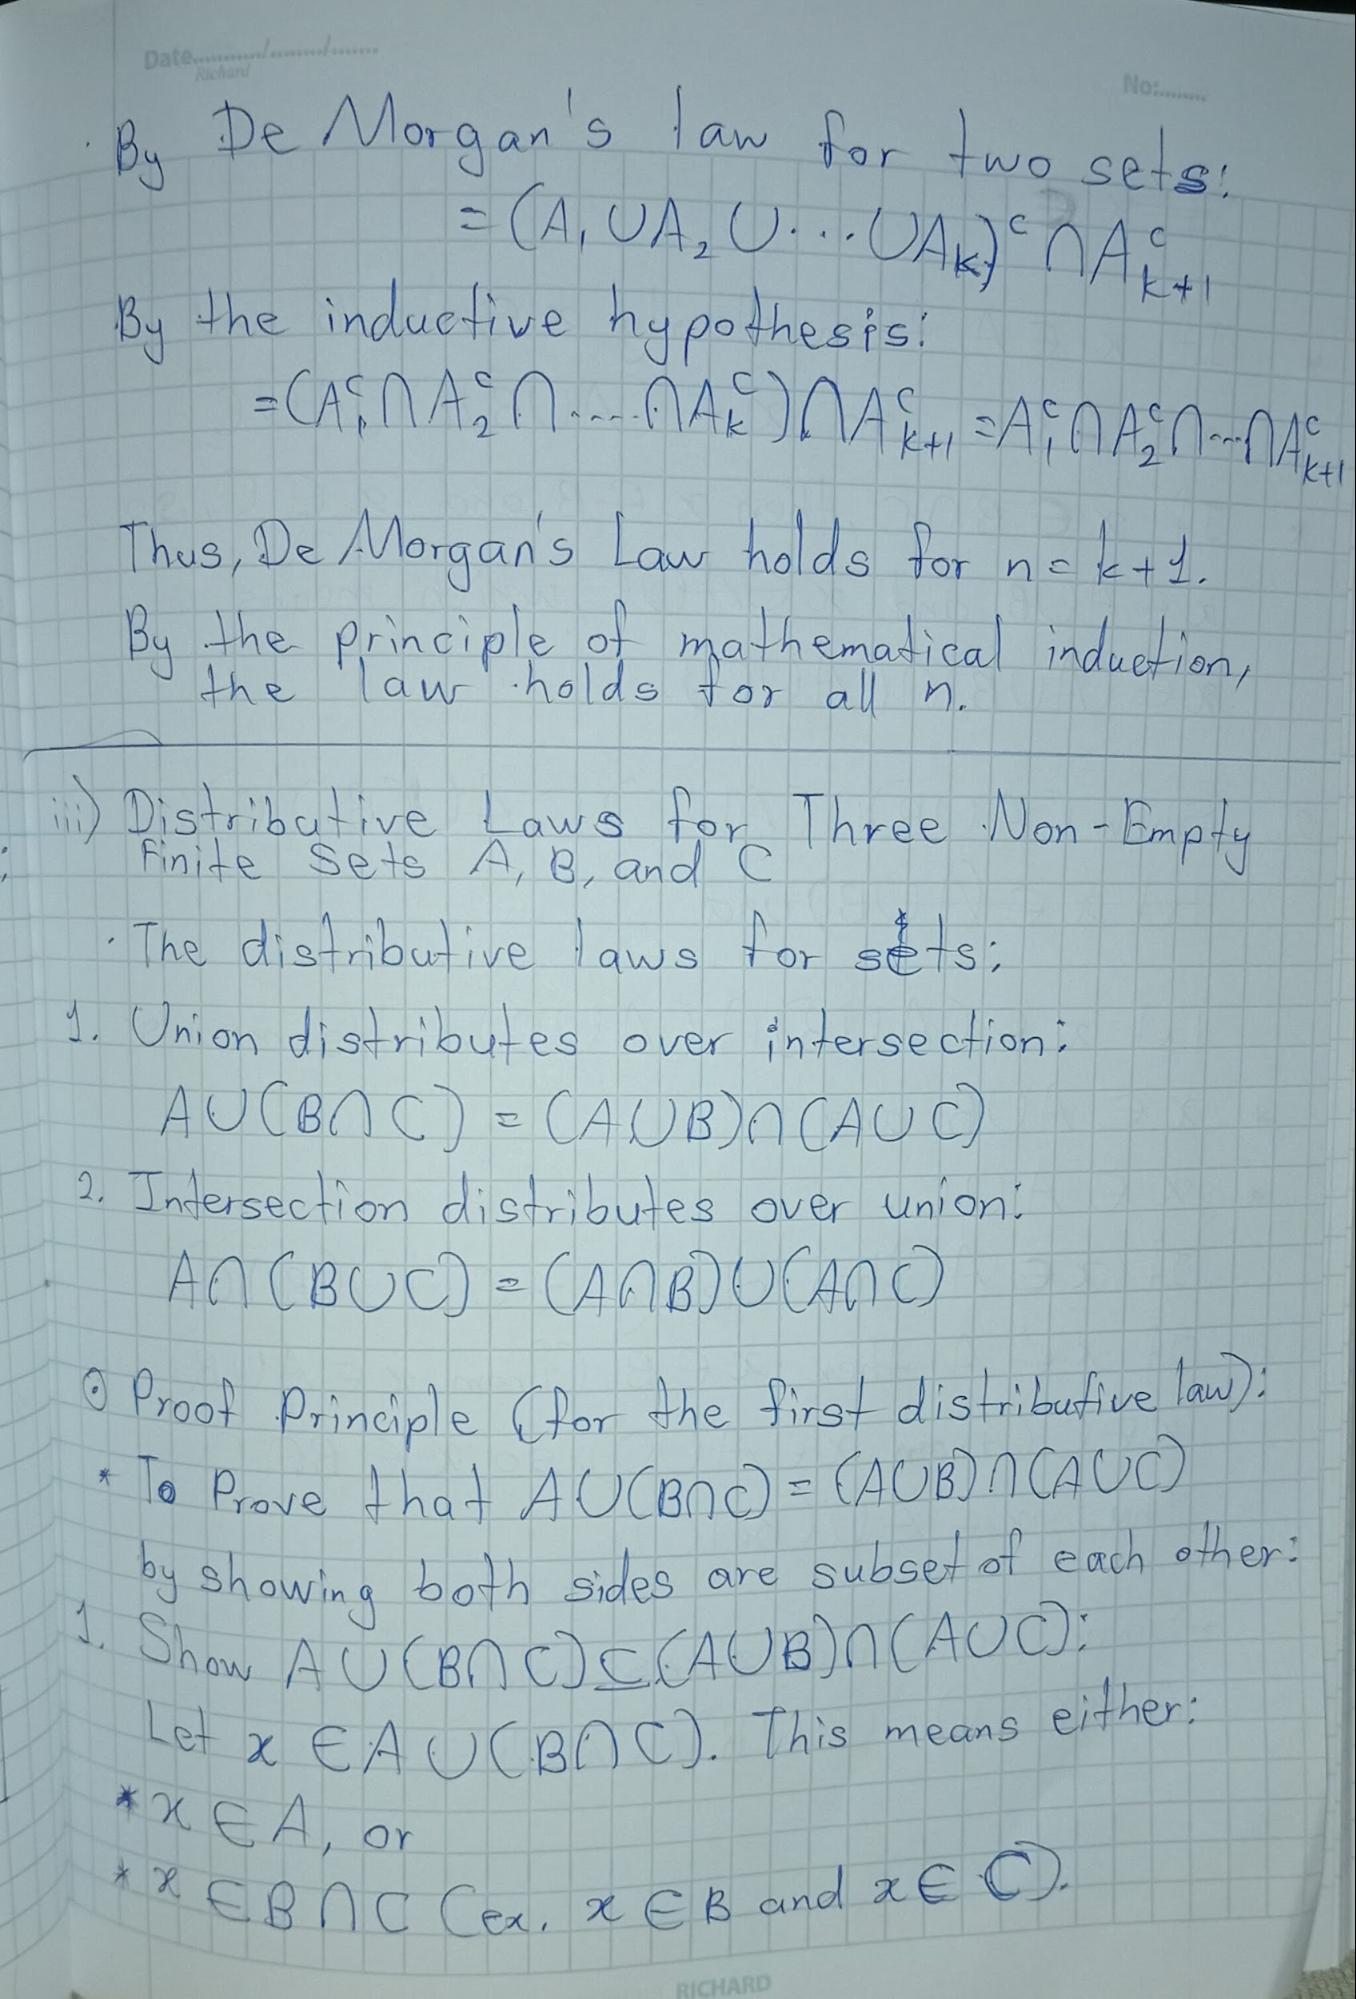 Date........../........../.......
Richard
No:........
By De Morgan's law for two sets:
= (A₁ ∪ A₂ ∪ ... ∪ Aₖ)ᶜ ∩ Aᶜₖ₊₁
By the inductive hypothesis:
= (A₁ᶜ ∩ A₂ᶜ ∩ .... ∩ Aₖᶜ) ∩ Aᶜₖ₊₁ = A₁ᶜ ∩ A₂ᶜ ∩ ... ∩ Aᶜₖ₊₁
Thus, De Morgan's Law holds for n = k+1.
By the principle of mathematical induction,
the law holds for all n.
iii) Distributive Laws for Three Non-Empty
Finite Sets A, B, and C
· The distributive laws for sets:
1. Union distributes over intersection:
A∪(B∩C) = (A∪B)∩(A∪C)
2. Intersection distributes over union:
A∩(B∪C) = (A∩B)∪(A∩C)
⊙ Proof Principle (for the first distributive law):
* To Prove that A∪(B∩C) = (A∪B)∩(A∪C)
by showing both sides are subset of each other:
1. Show A∪(B∩C)⊆(A∪B)∩(A∪C):
Let x ∈ A∪(B∩C). This means either:
* x ∈ A, or
* x ∈ B∩C (ex. x ∈ B and x ∈ C).
RICHARD